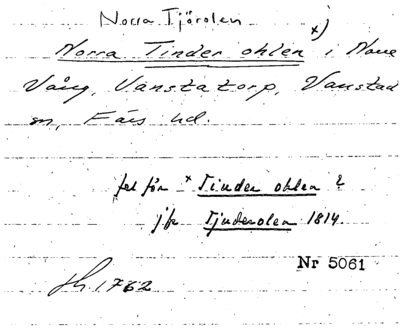 Norra Tjärolen
Norra Tinder ohlen x) i Norre
Vång, Vanstatorp, Vanstad
sn, Färs hd.
fel för x Tinder ohlen ?
jfr Tjuderolen 1814.
Nr 5061
Jh. 1762